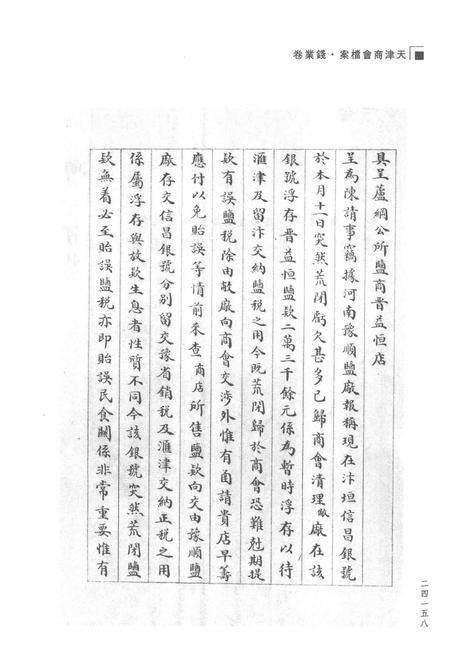 天津商會檔案·錢業卷
具呈蘆綱公所鹽商晋益恒店
呈為陳請事竊據河南豫順鹽廠報稱現在汴垣信昌銀號
於本月十一日突然荒閉虧欠甚多已歸商會清理敝廠在該
銀號浮存晋益恒鹽欵二萬三千餘元係為暫時浮存以待
滙津及留汴交納鹽税之用今既荒閉歸於商會恐難尅期提
欵有誤鹽税除由敝廠向商會交涉外惟有函請貴店早籌
應付以免貽誤等情前來查商店所售鹽欵向交由豫順鹽
廠存交信昌銀號分別留交豫省銷税及滙津交納正税之用
係屬浮存與放欵生息者性質不同今該銀號突然荒閉鹽
欵無着必至貽誤鹽税亦即貽誤民食關係非常重要惟有
二四一五八